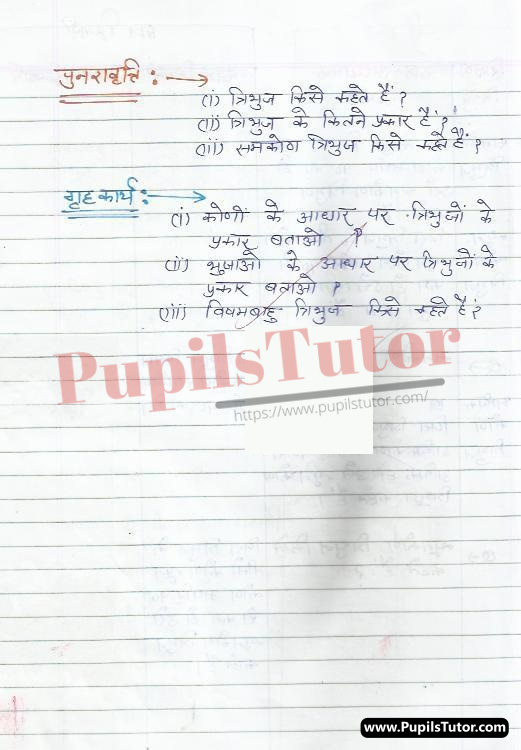 पुनरावृत्ति :→
(i) त्रिभुज किसे कहते हैं ?
(ii) त्रिभुज के कितने प्रकार हैं ?
(iii) समकोण त्रिभुज किसे कहते हैं ?
गृहकार्य :→
(i) कोणों के आधार पर त्रिभुजों के
प्रकार बताओ ?
(ii) भुजाओं के आधार पर त्रिभुजों के
प्रकार बताओ ?
(iii) विषमबाहु त्रिभुज किसे कहते हैं ?
PupilsTutor
https://www.pupilstutor.com/
www.PupilsTutor.com